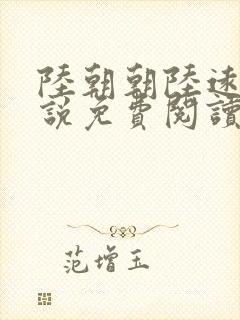 陸朝朝陸遠
說免費閱讀
范增玉